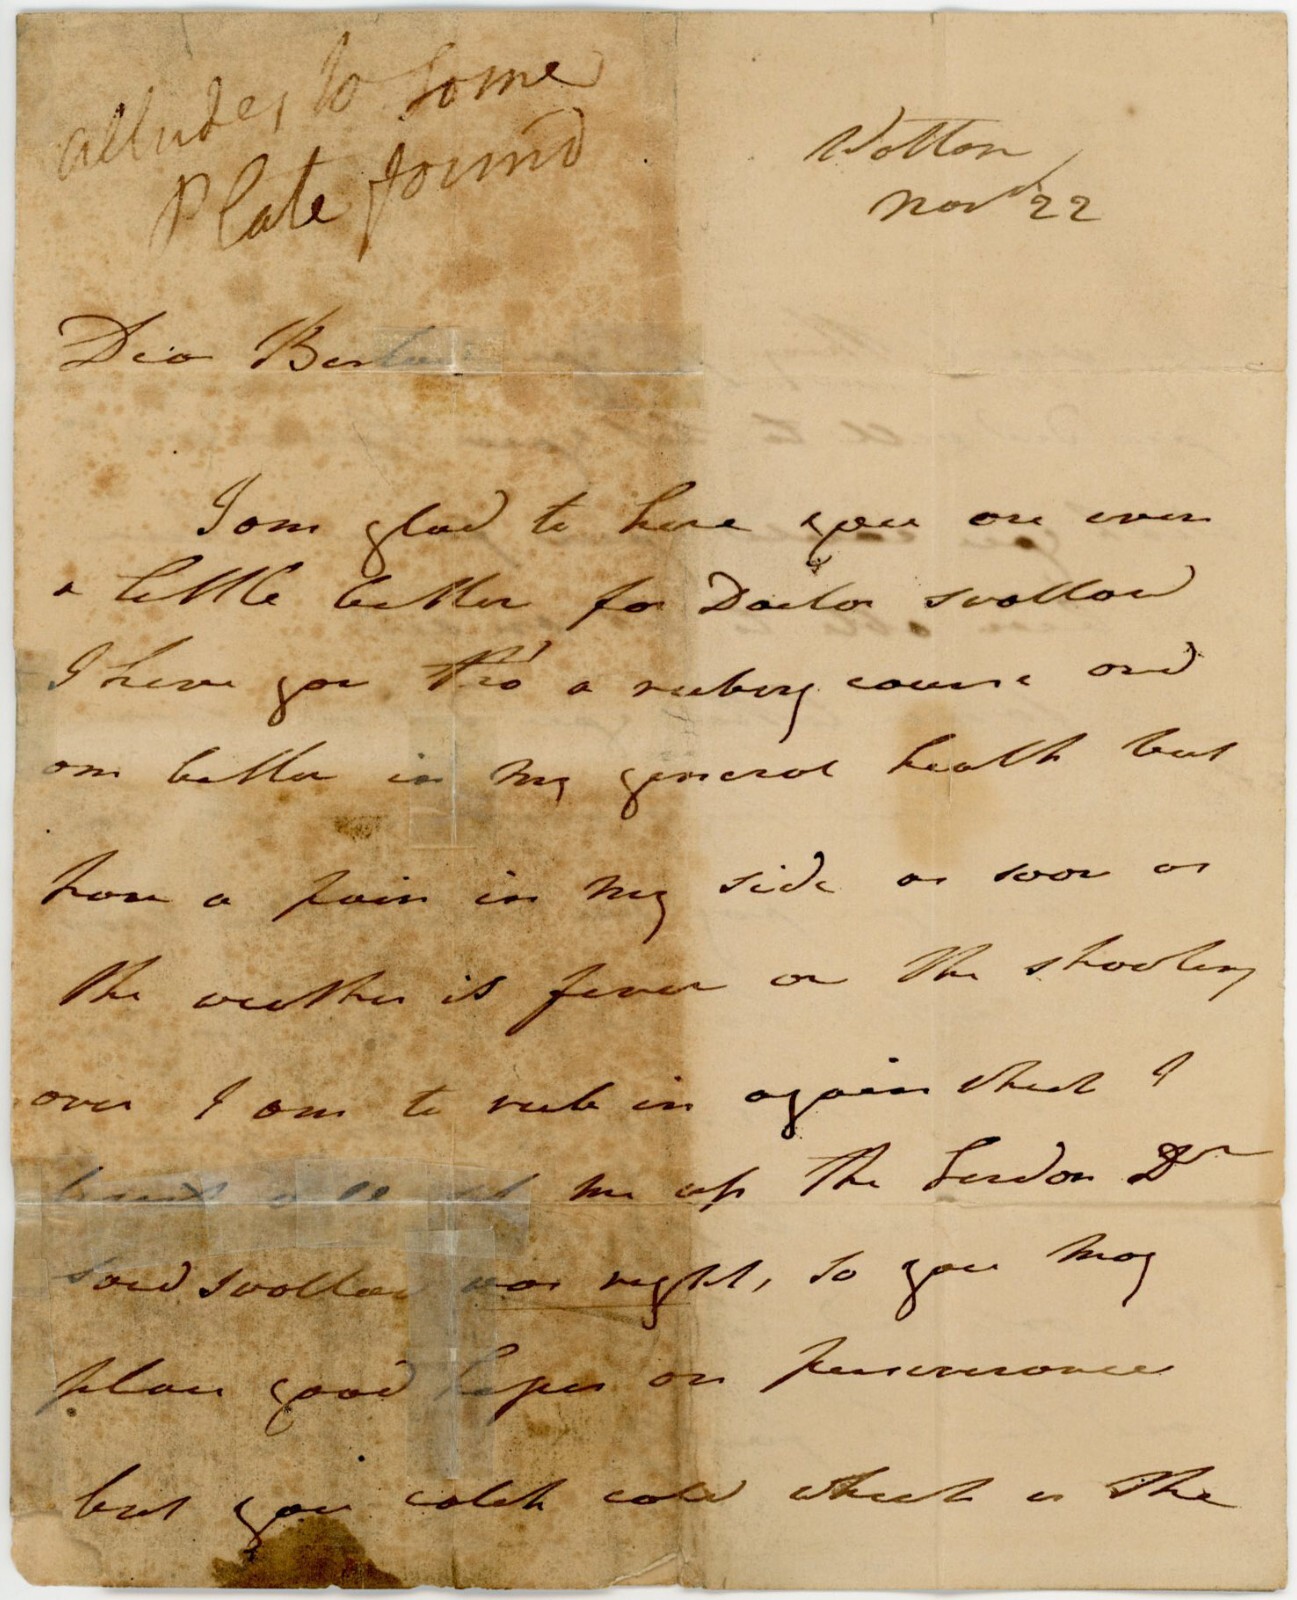 alludes to some
Plate found
Wotton
Novr 22
Dear
I am glad to hear you are even
a little better for Doctor Swallow
I have gon thro' a rubing course and
am better in my general health but
have a pain in my side as soon as
the weather is fever or the shooting
over I am to rub in again which I
me up the London Dr
said Swallow was right, so you may
place good hopes on perseverance
but you catch cold which is the